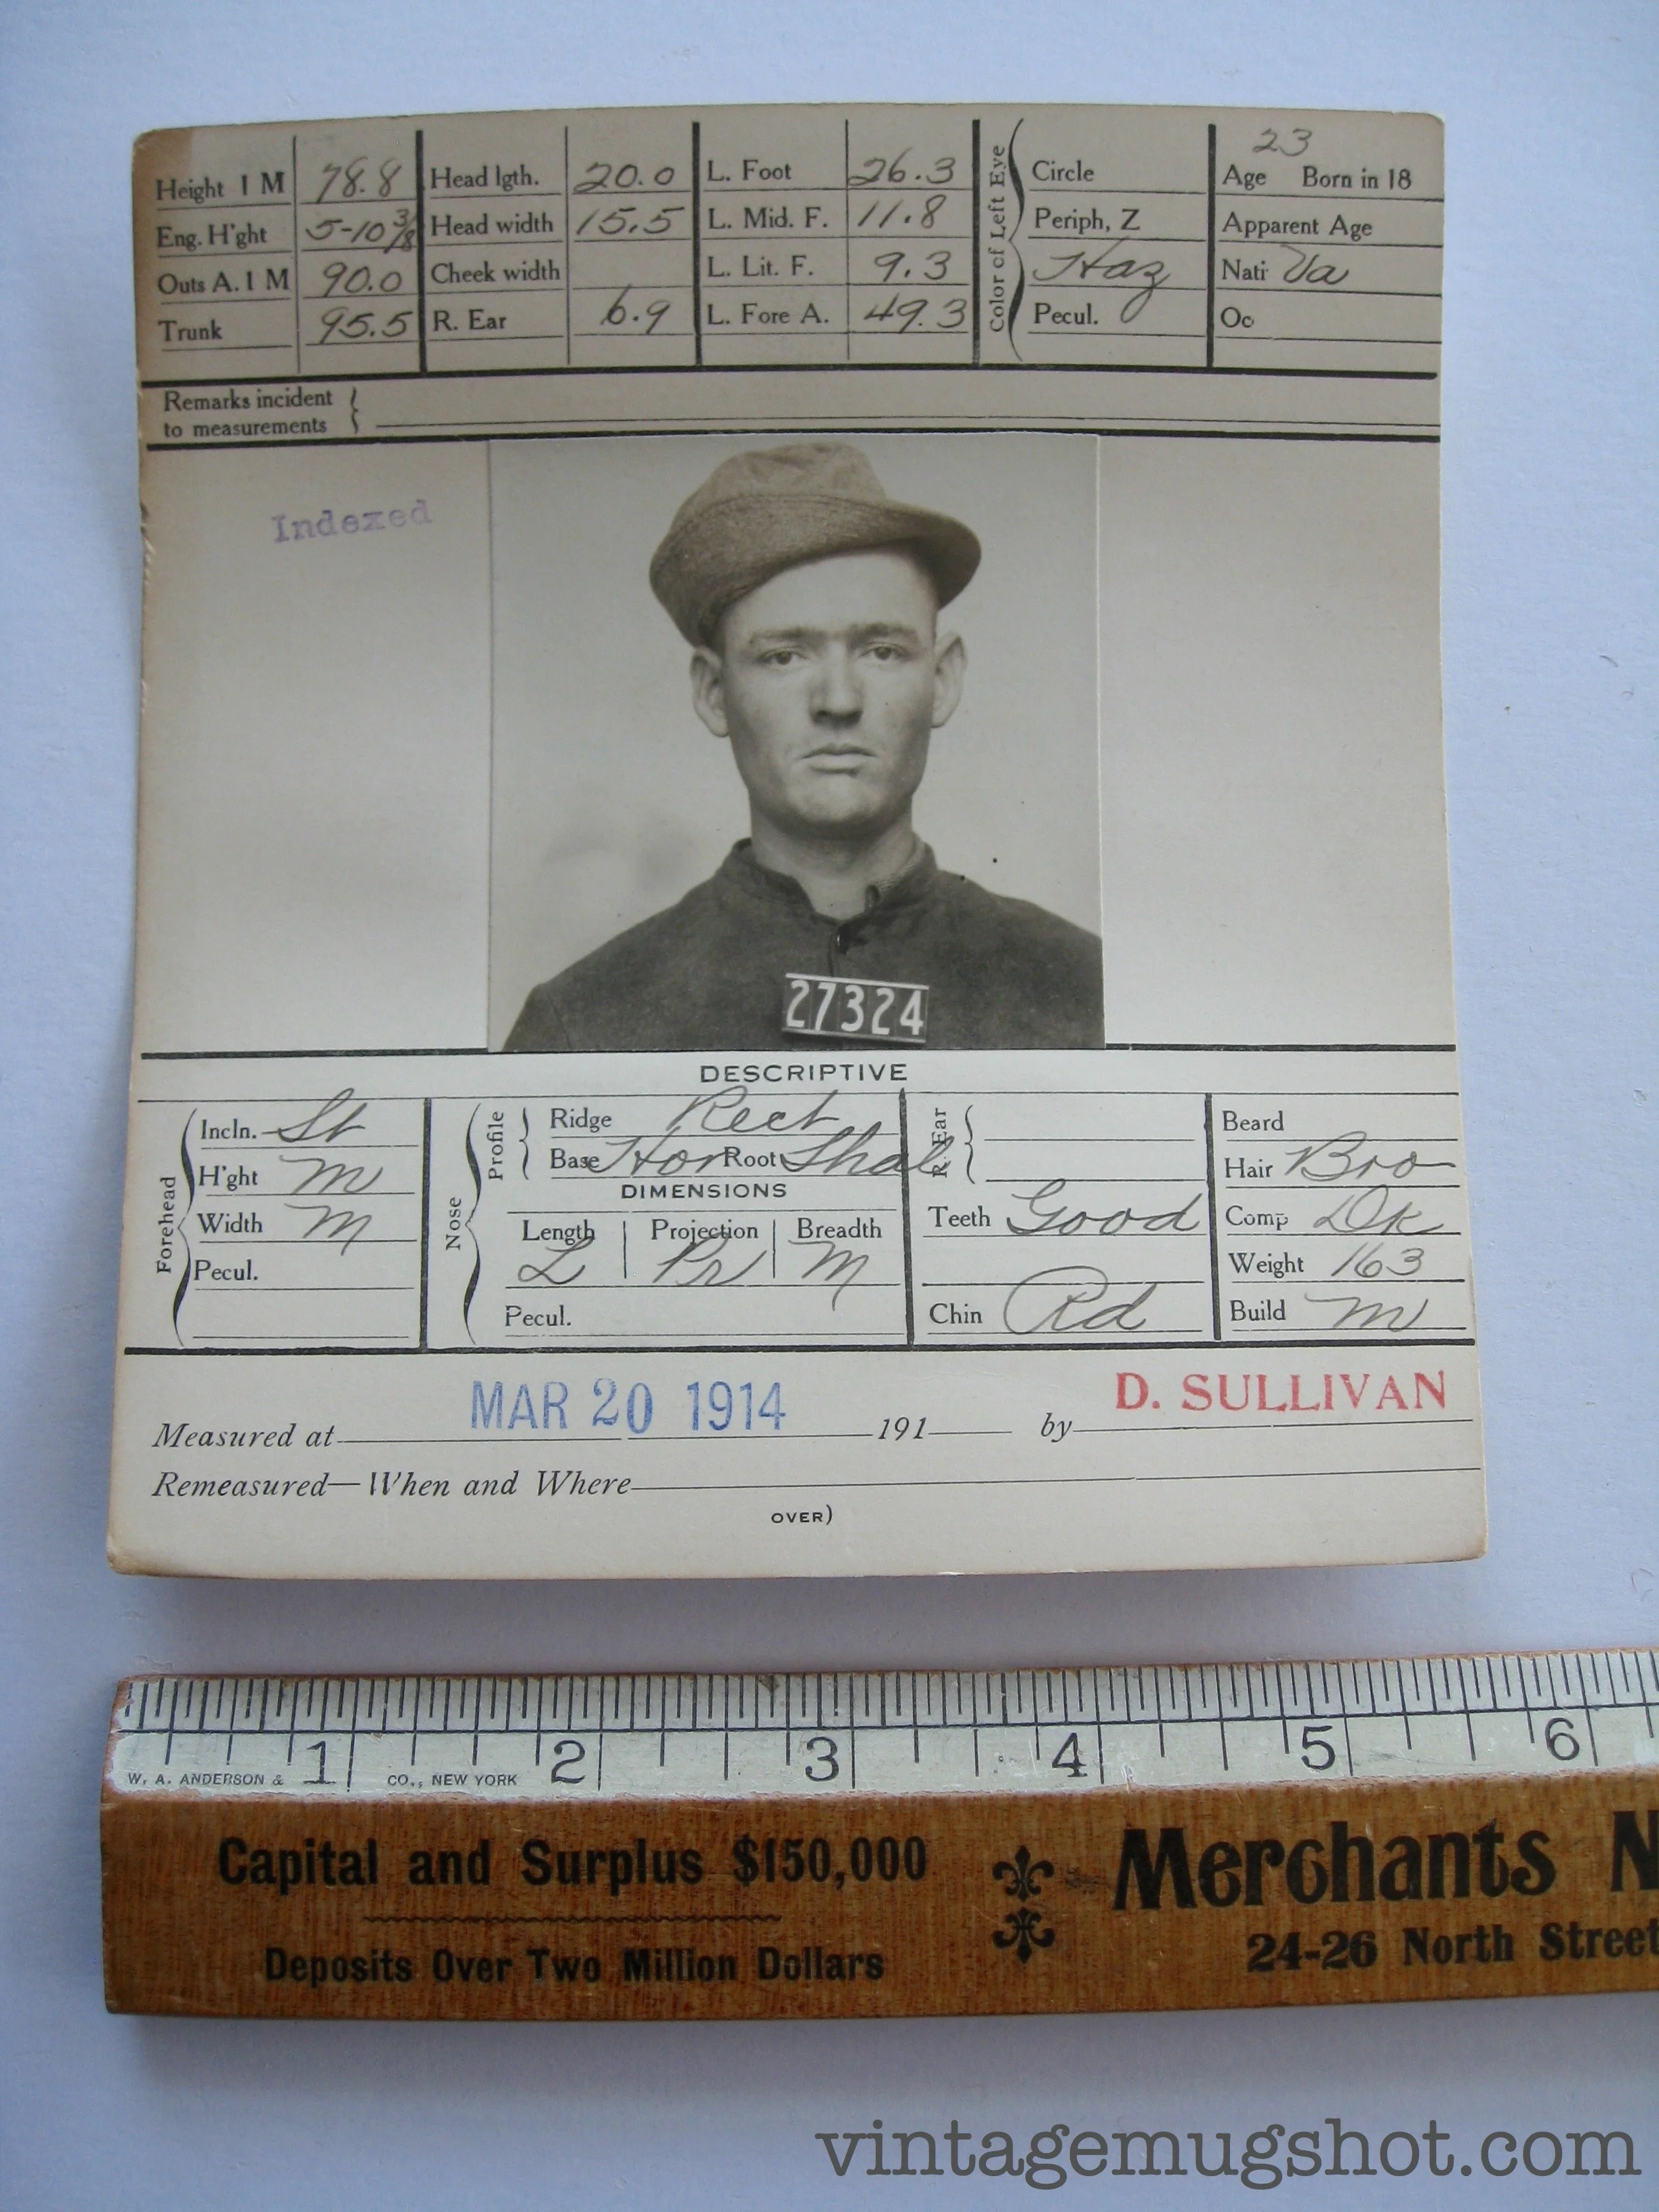 23
Height 1 M 78.8 Head lgth. 20.0 L. Foot 26.3 Circle Age Born in 18
Eng. H'ght 5-10 3/8 Head width 15.5 L. Mid. F. 11.8 Periph, Z Apparent Age
Outs A. 1 M 90.0 Cheek width L. Lit. F. 9.3 Haz Nati Va
Trunk 95.5 R. Ear 6.9 L. Fore A. 49.3 Pecul. Oc
Color of Left Eye
Remarks incident
to measurements
Indexed
27324
DESCRIPTIVE
Forehead
Incln. St
H'ght M
Width M
Pecul.
Nose
Profile
Ridge Rect
Base Hor Root Shal
DIMENSIONS
Length Projection Breadth
L Pr M
Pecul.
R. Ear
Teeth Good
Chin Rd
Beard
Hair Bro
Comp Dk
Weight 163
Build M
Measured at MAR 20 1914 191 by D. SULLIVAN
Remeasured—When and Where
OVER)
1 2 3 4 5 6
W. A. ANDERSON & CO., NEW YORK
Capital and Surplus $150,000 Merchants N
Deposits Over Two Million Dollars 24-26 North Street
vintagemugshot.com